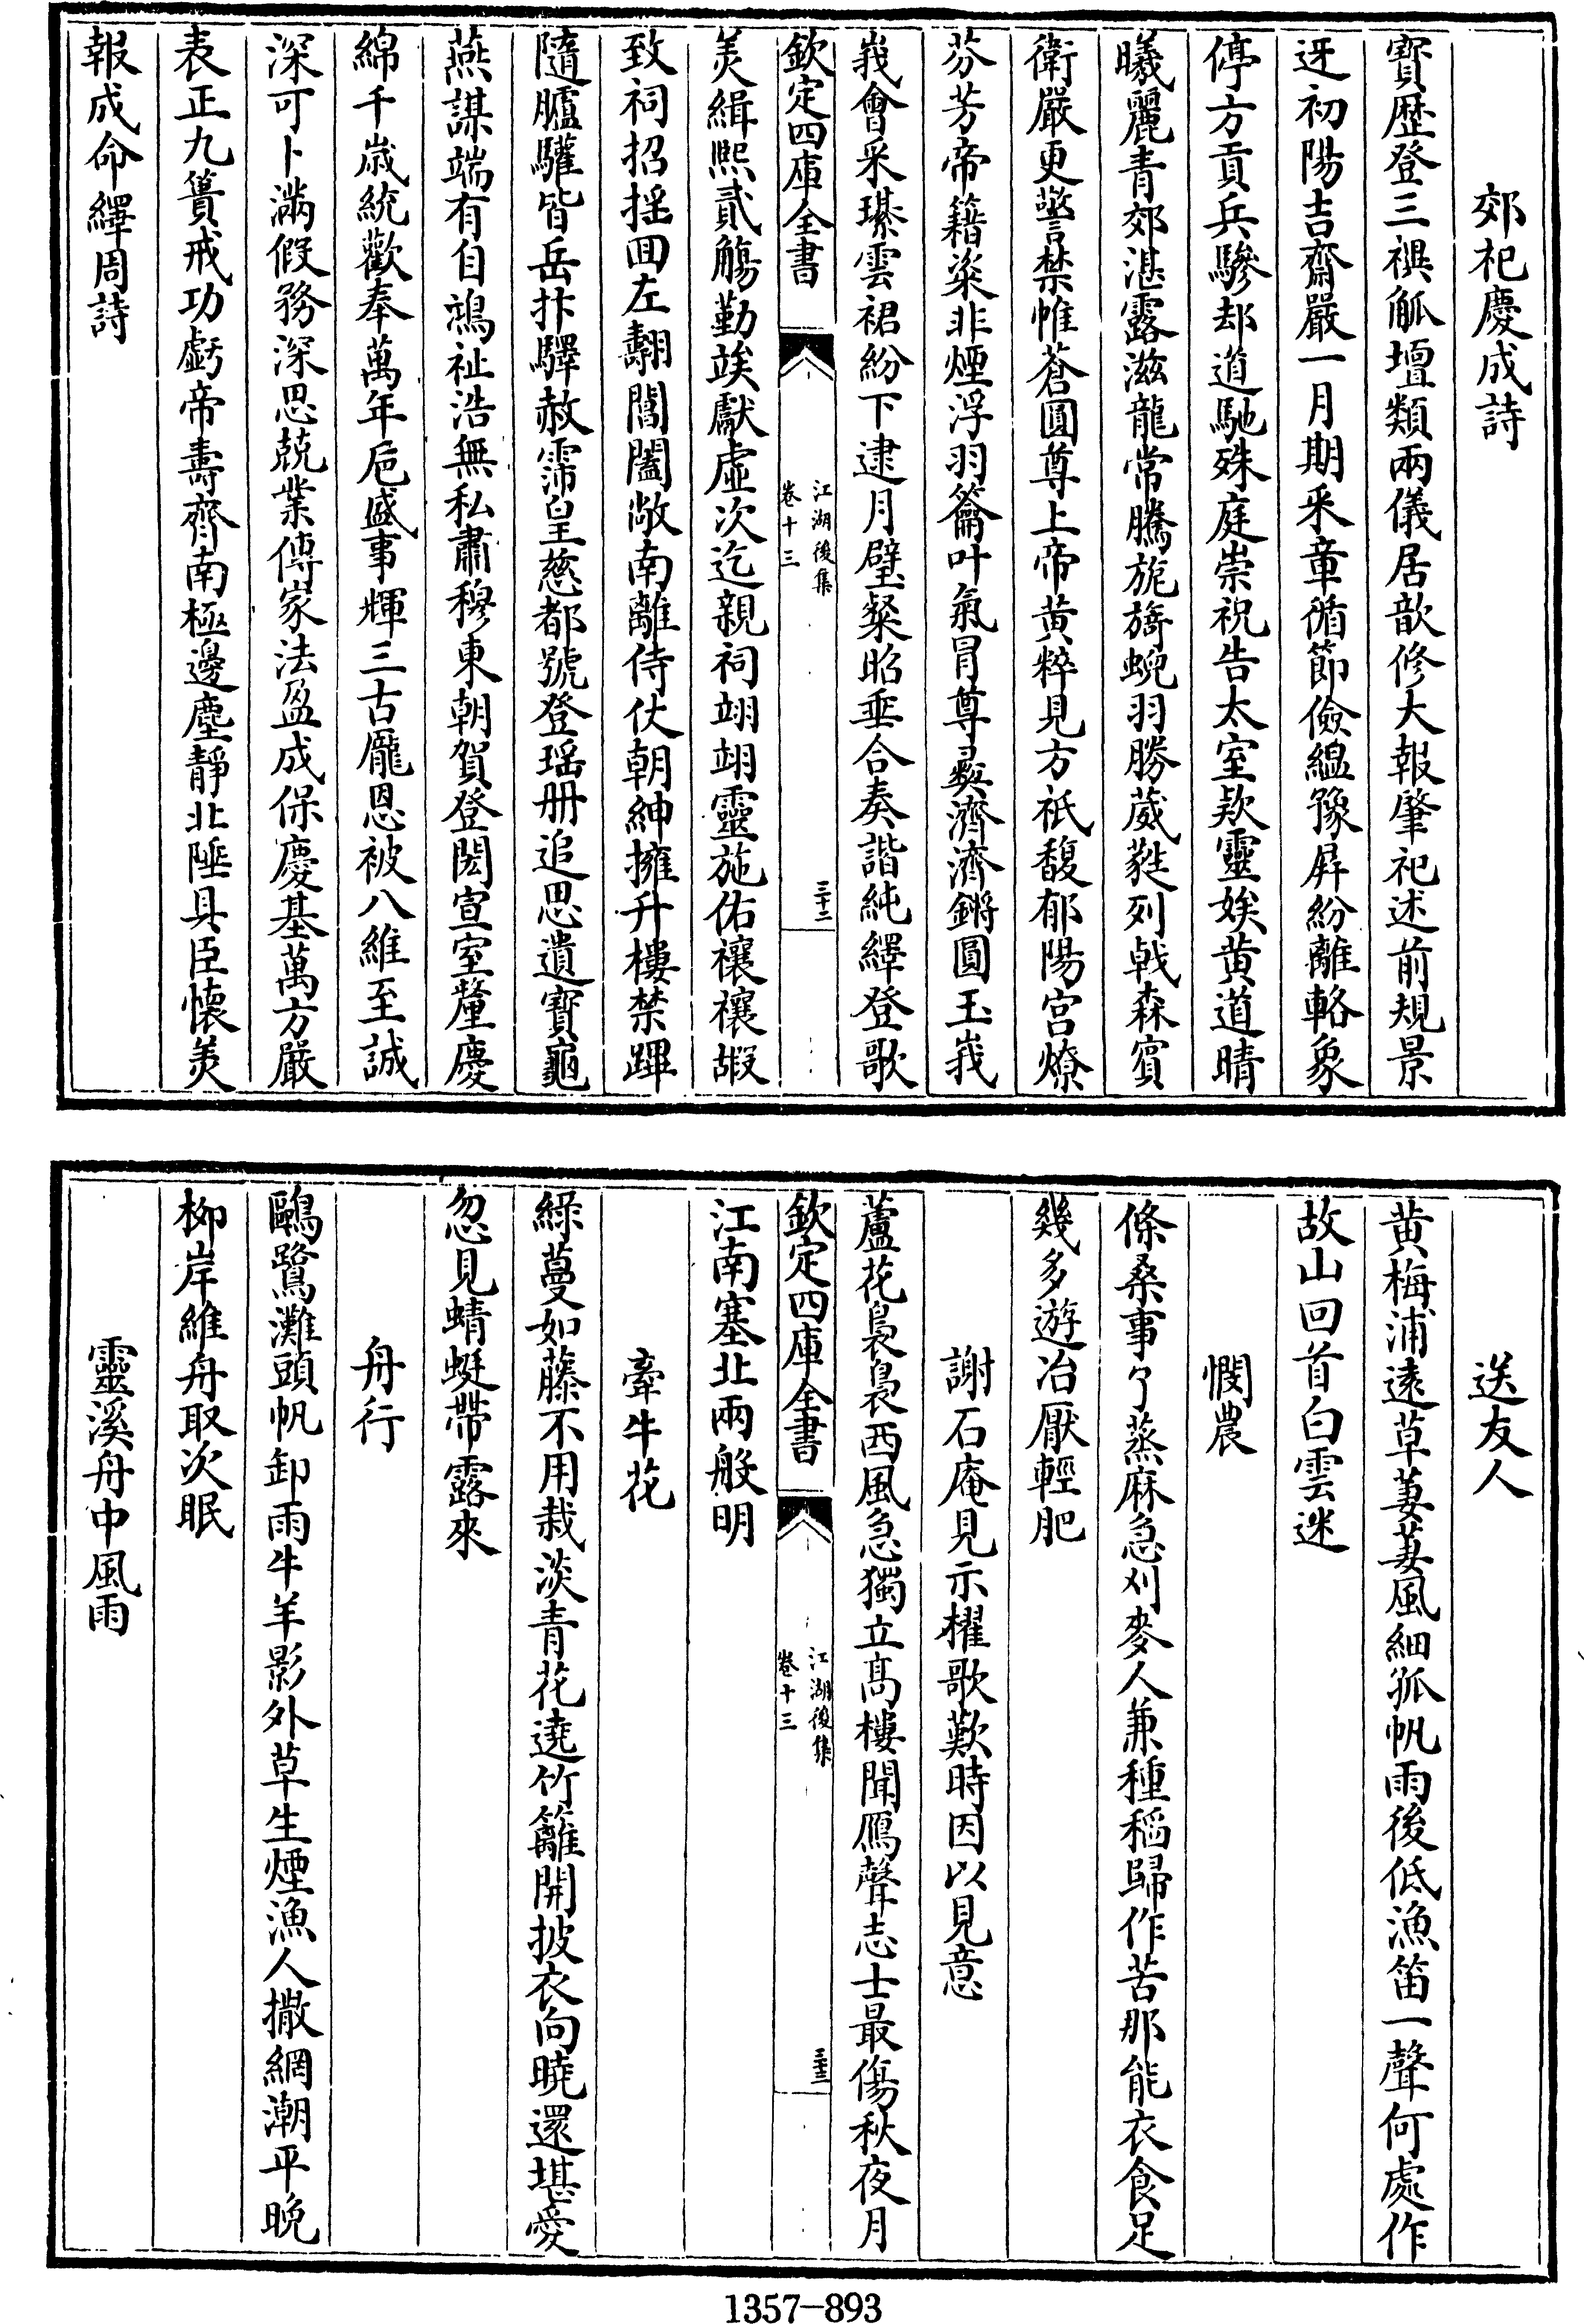 郊祀慶成詩
寳歴登三禩觚壇類兩儀居歆修大報肇祀述前規景
迓初陽吉齋嚴一月期釆章循節儉緼豫屏紛離輅象
停方貢兵驂却道馳殊庭崇祝告太室欵靈娭黄道晴
曦麗青郊湛露滋龍常騰旎旖蜺羽勝葳蕤列㦸森賓
衛嚴更警禁帷蒼圓尊上帝黄粹見方祇馥郁陽宫燎
芬芳帝籍粢非煙浮羽籥叶氣冐尊彛濟濟鏘圓玉峩
峩會采璂雲裙紛下逮月璧粲昭垂合奏諧純繹登歌
欽定四庫全書
江湖後集
卷十三
三十二
美緝熙貳觴勤竢獻虛次迄親祠翊翊靈施佑禳禳嘏
致祠招摇囬左翿閶闔敞南離侍仗朝紳擁升樓禁蹕
隨臚驩皆岳抃驛赦霈皇慈都號登瑶册追思遺寳龜
燕謀端有自鴻祉浩無私肅穆東朝賀登閎宣室釐慶
綿千歳統歡奉萬年巵盛事輝三古厖恩被八維至誠
深可卜滿假務深思兢業傳家法盈成保慶基萬方嚴
表正九簣戒功虧帝壽齊南極邊塵靜北陲具臣懐美
報成命繹周詩
送友人
黄梅浦逺草萋萋風細孤帆雨後低漁笛一聲何處作
故山回首白雲迷
憫農
條桑事了蒸麻急刈麥人兼種稻歸作苦那能衣食足
幾多遊冶厭輕肥
謝石庵見示櫂歌歎時因以見意
蘆花裊裊西風急獨立髙樓聞鴈聲志士最傷秋夜月
欽定四庫全書
江湖後集
卷十三
三十三
江南塞北兩般明
牽牛花
緑蔓如藤不用栽淡青花遶竹籬開披衣向曉還堪愛
忽見蜻蜓帶露來
舟行
鷗鷺灘頭帆卸雨牛羊影外草生煙漁人撒網潮平晚
柳岸維舟取次眠
靈溪舟中風雨
1357-893